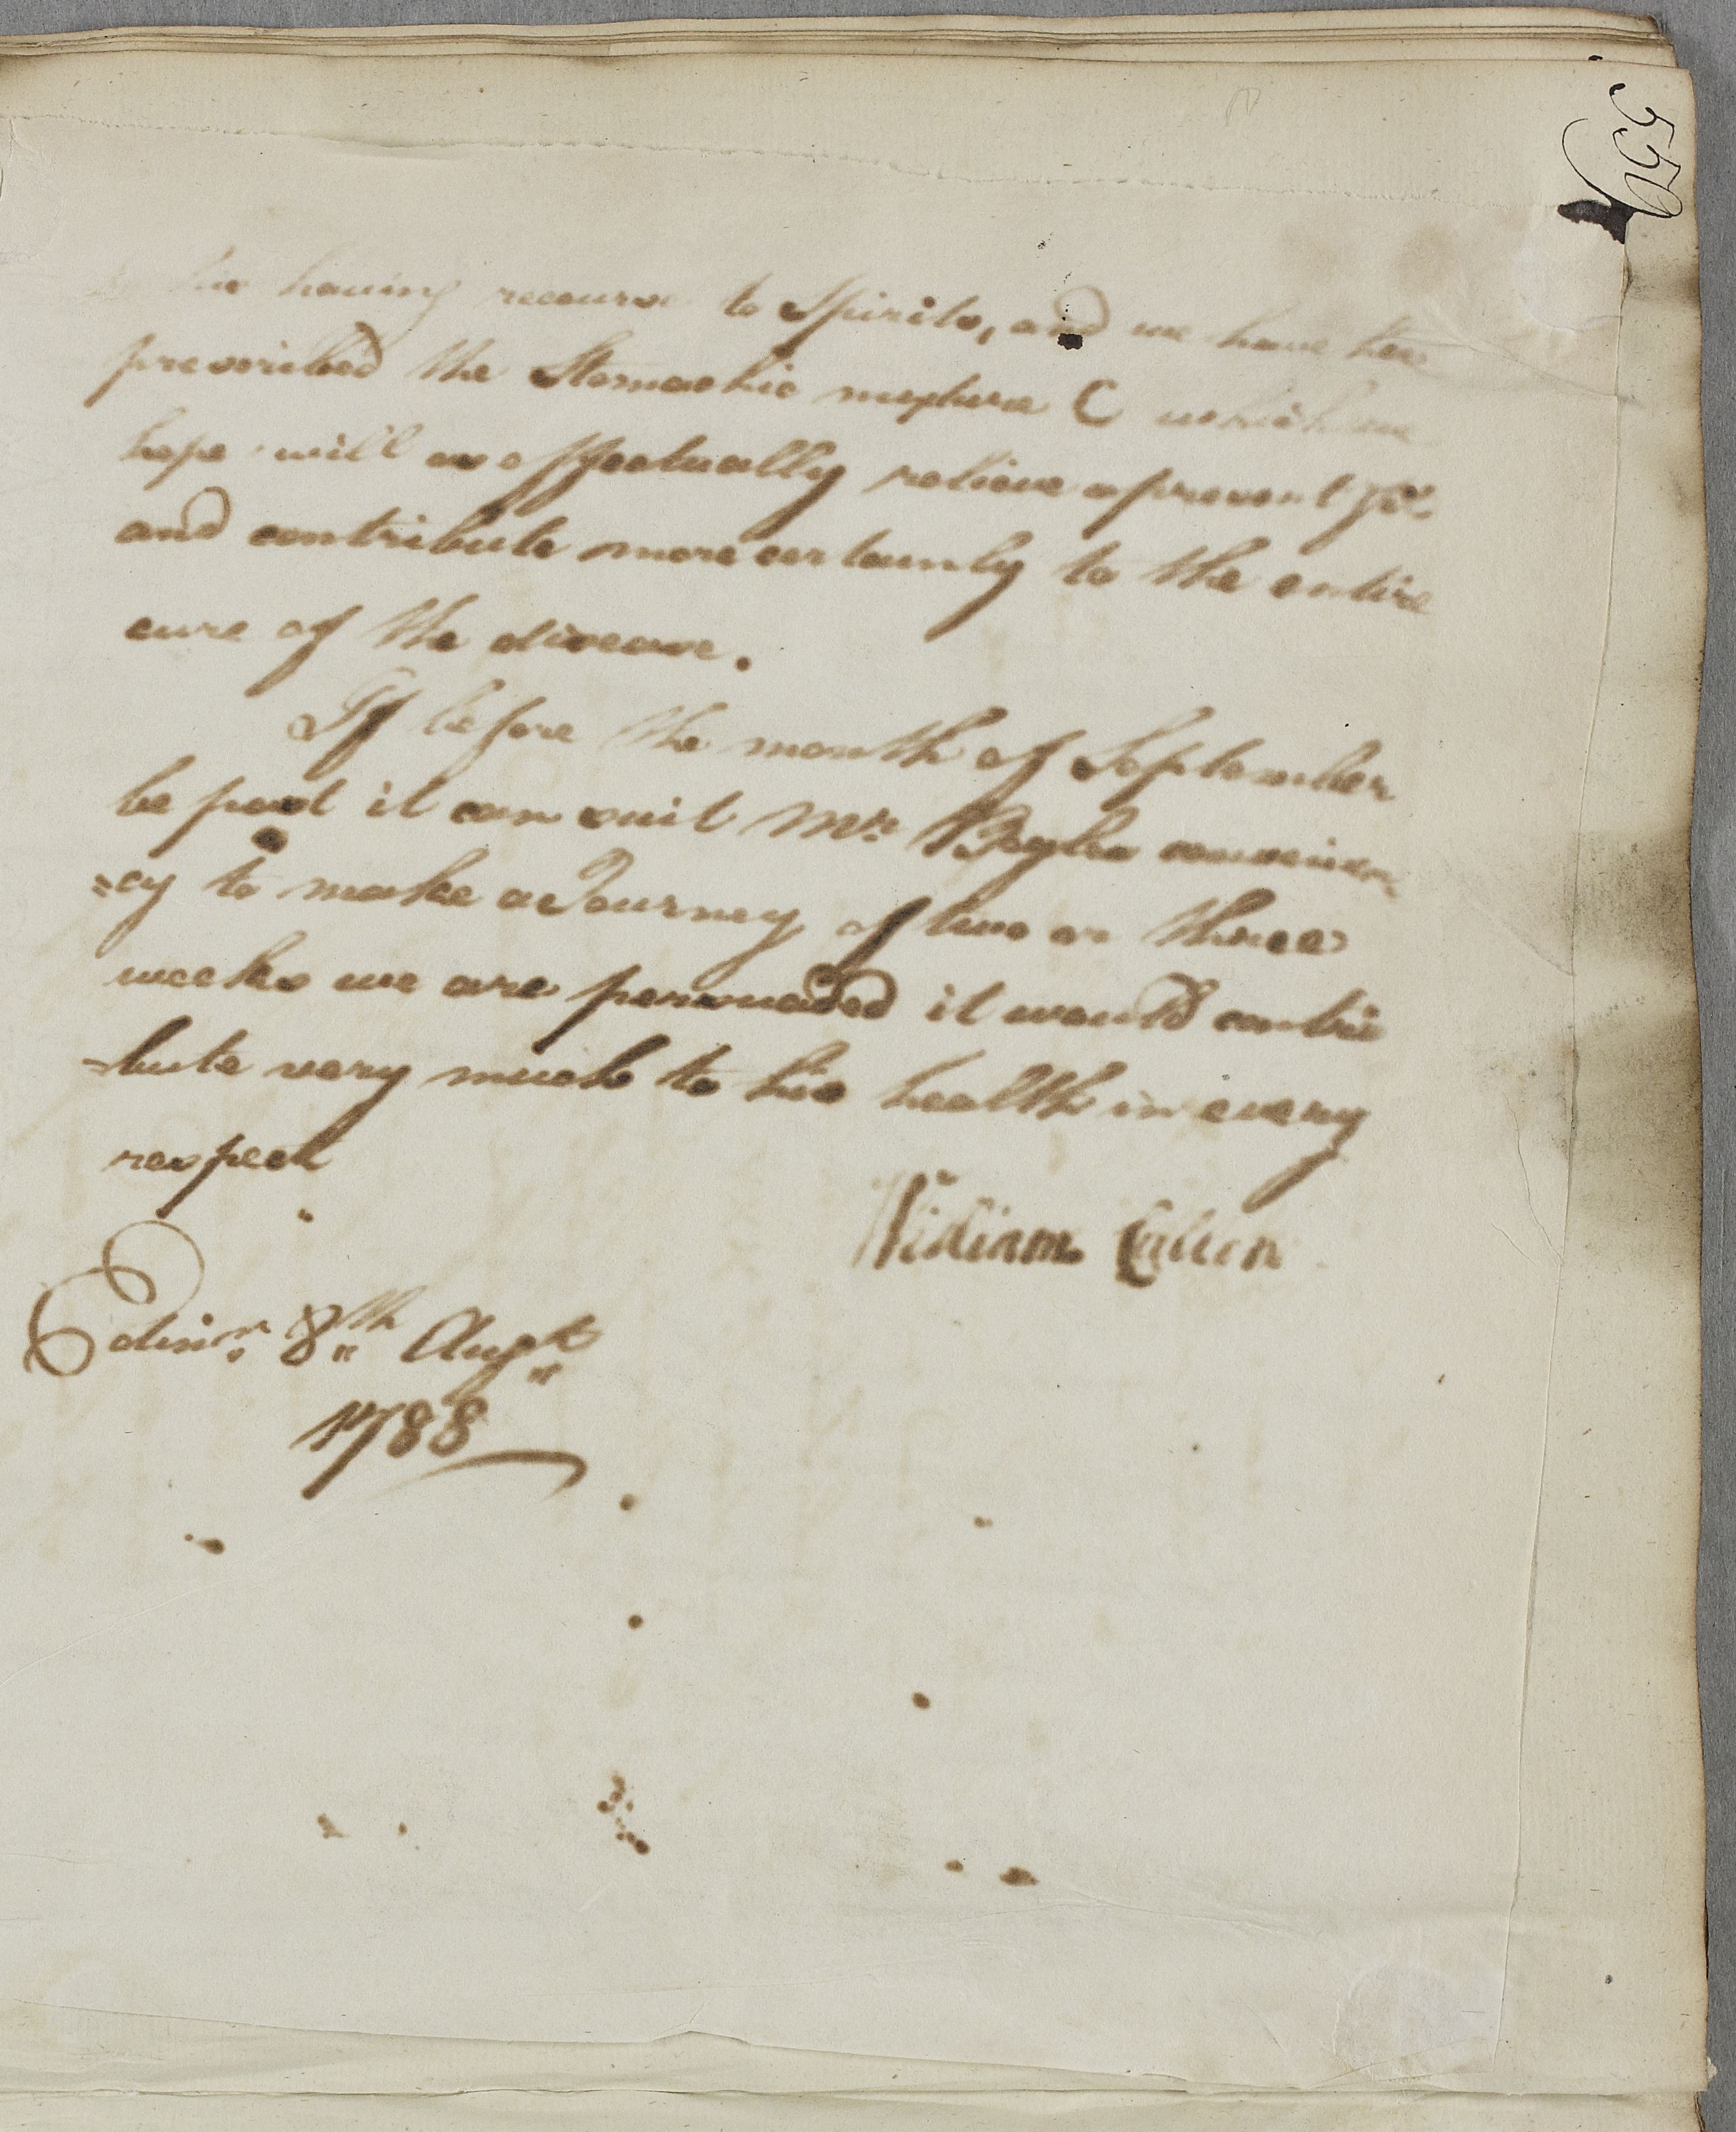 559
his having recourse to Spirits, and we have here
prescribed the Stomachic mixture C which we
hope will as effectually relieve a present fit
and contribute more certainly to the entire
cure of the disease.
If before the month of September
be past it can suit Mr Boyles convenien
=cy to make a Journey of two or three
weeks we are persuaded it would contri
-bute very much to his health in every
respect
William Cullen
Edinr. 8th Augt
1788